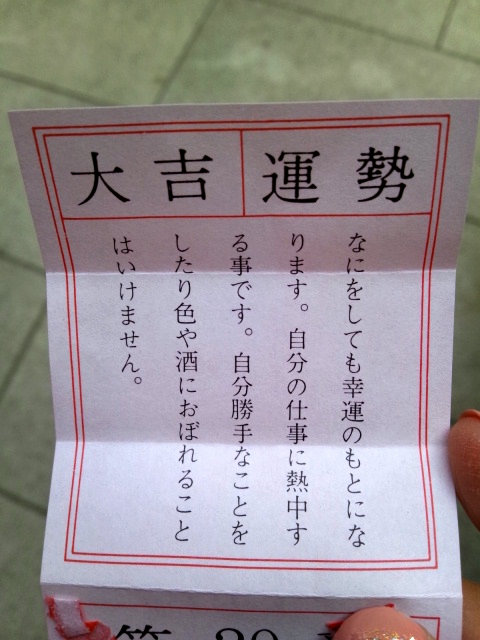 運勢 大吉
なにをしても幸運のもとにな
ります。自分の仕事に熱中す
る事です。自分勝手なことを
したり色や酒におぼれること
はいけません。